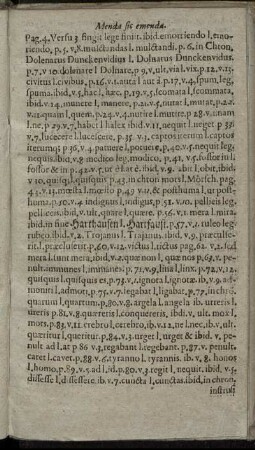 Menda sic emenda.
Pag. 4. Versu 3 fingit lege finit. ibid. emorriendo l. emo-
riendo, p. 5. v. 8. mulctandas l. mulctandi. p. 6. in Chron.
Dolenarus Dunckenvidius l. Dolnarus Dunckenvidus.
p. 7. v. 10. dolenare l. Dolnare, p. 9, v. ult, via l. vix. p. 12. v. 13.
civitus l. civibus, p. 16. v. 1. aura l. à p. 17. v. 4. spum, leg,
spuma. ibid, v. 5, hac l, harc, p. 19, v. 5, scomata l, scommata,
ibid, v. 11. manere l, munere, p. 21. v. 5, nutat l, mutat, p. 22. v.
v. 11. quam l, quem. p. 24. v. 4, nutire l. mutire p. 28 v. 1. nam
l. ne. p. 29. v. 7, habet l. alet ibid. v. 11, nequit l. urget p. 35,
v. 7, lucecere l. lucescere, p. 35. v. 5, captos iterum l. captos
iterumq; p. 36 v. 4. patuere l, potuere, p. 40. v. 5. nequit leg,
nequis. ibid, v. 8 medico leg, modico, p. 41, v. 5. fossor iu l;
fossor & in p. 42. v. 5. ut pè arè. ibid, v. 9. abit l. obit, ibid;
v 10. quisq; l. quisquis p. 43. in chron mors l. Mörsch. pag,
43. v. 13. mæsta l. mærst l, hàrc v. 11. & posthuma l, ut posth-
humo, p. 50. v. 4. indignat l, indigus, p. 51. v. 10. pelliceis leg,
pellices, ibid, v. ult, quare l, quære. p. 56. v. 12. mera l. mira,
ibid. in fine Harthausen l. Hartfaust, p. 57. v. 1. rufeo leg
rufisco. ibid, v. 2. Trojanu l. Trajanu. ibid. v. 9, præcule-
rit, l. præfuleriт. p. 60. v. 12. victus l. tictus pag, 62. v. 2. sed
mera l. sunt mera, ibid. v. 2. quæ non l, quæ nos p. 69, v. pe-
nult. immunes l, immanes. p. 71. v. 9, lina l. linx. p. 72. v, 12.
quisquis l. quisquis es p. 73. v, ignora l. ignoræ. ib. v. 9. ad-
moturi l, admotus, p. 75. v. 7. legabat l, ligabat, p, 76. inchr,
quarum l, quartum. p. 80. v. 8. argela l. angela ib. urreris l,
ureris p. 81. v. 8. quærcis l. conquereris, ibid: v. ult. mox l,
mors, p. 83, v. 11. crebro l, cerebro, ib. v. 12, ne l. nec, ib. v. ult.
quæritur l, queritur. p. 84. v. 3. urger l, urget & ibid. v, pe-
nult ad l. at p 86 v 3, regabant l. tegebant. p. 87. v. penult.
caret l. cavet. p. 88. v. 6. tyranno l. tyrannis. ib v, 8. honos
l. homo. p. 89. v. 5. ad l, id. p. 80. v. 3. regit l, nequit. ibid, v. 5.
dissesse l, dissessere. ib. v. 7. cuncta l, cunctas. ibid, in chron,
instrux